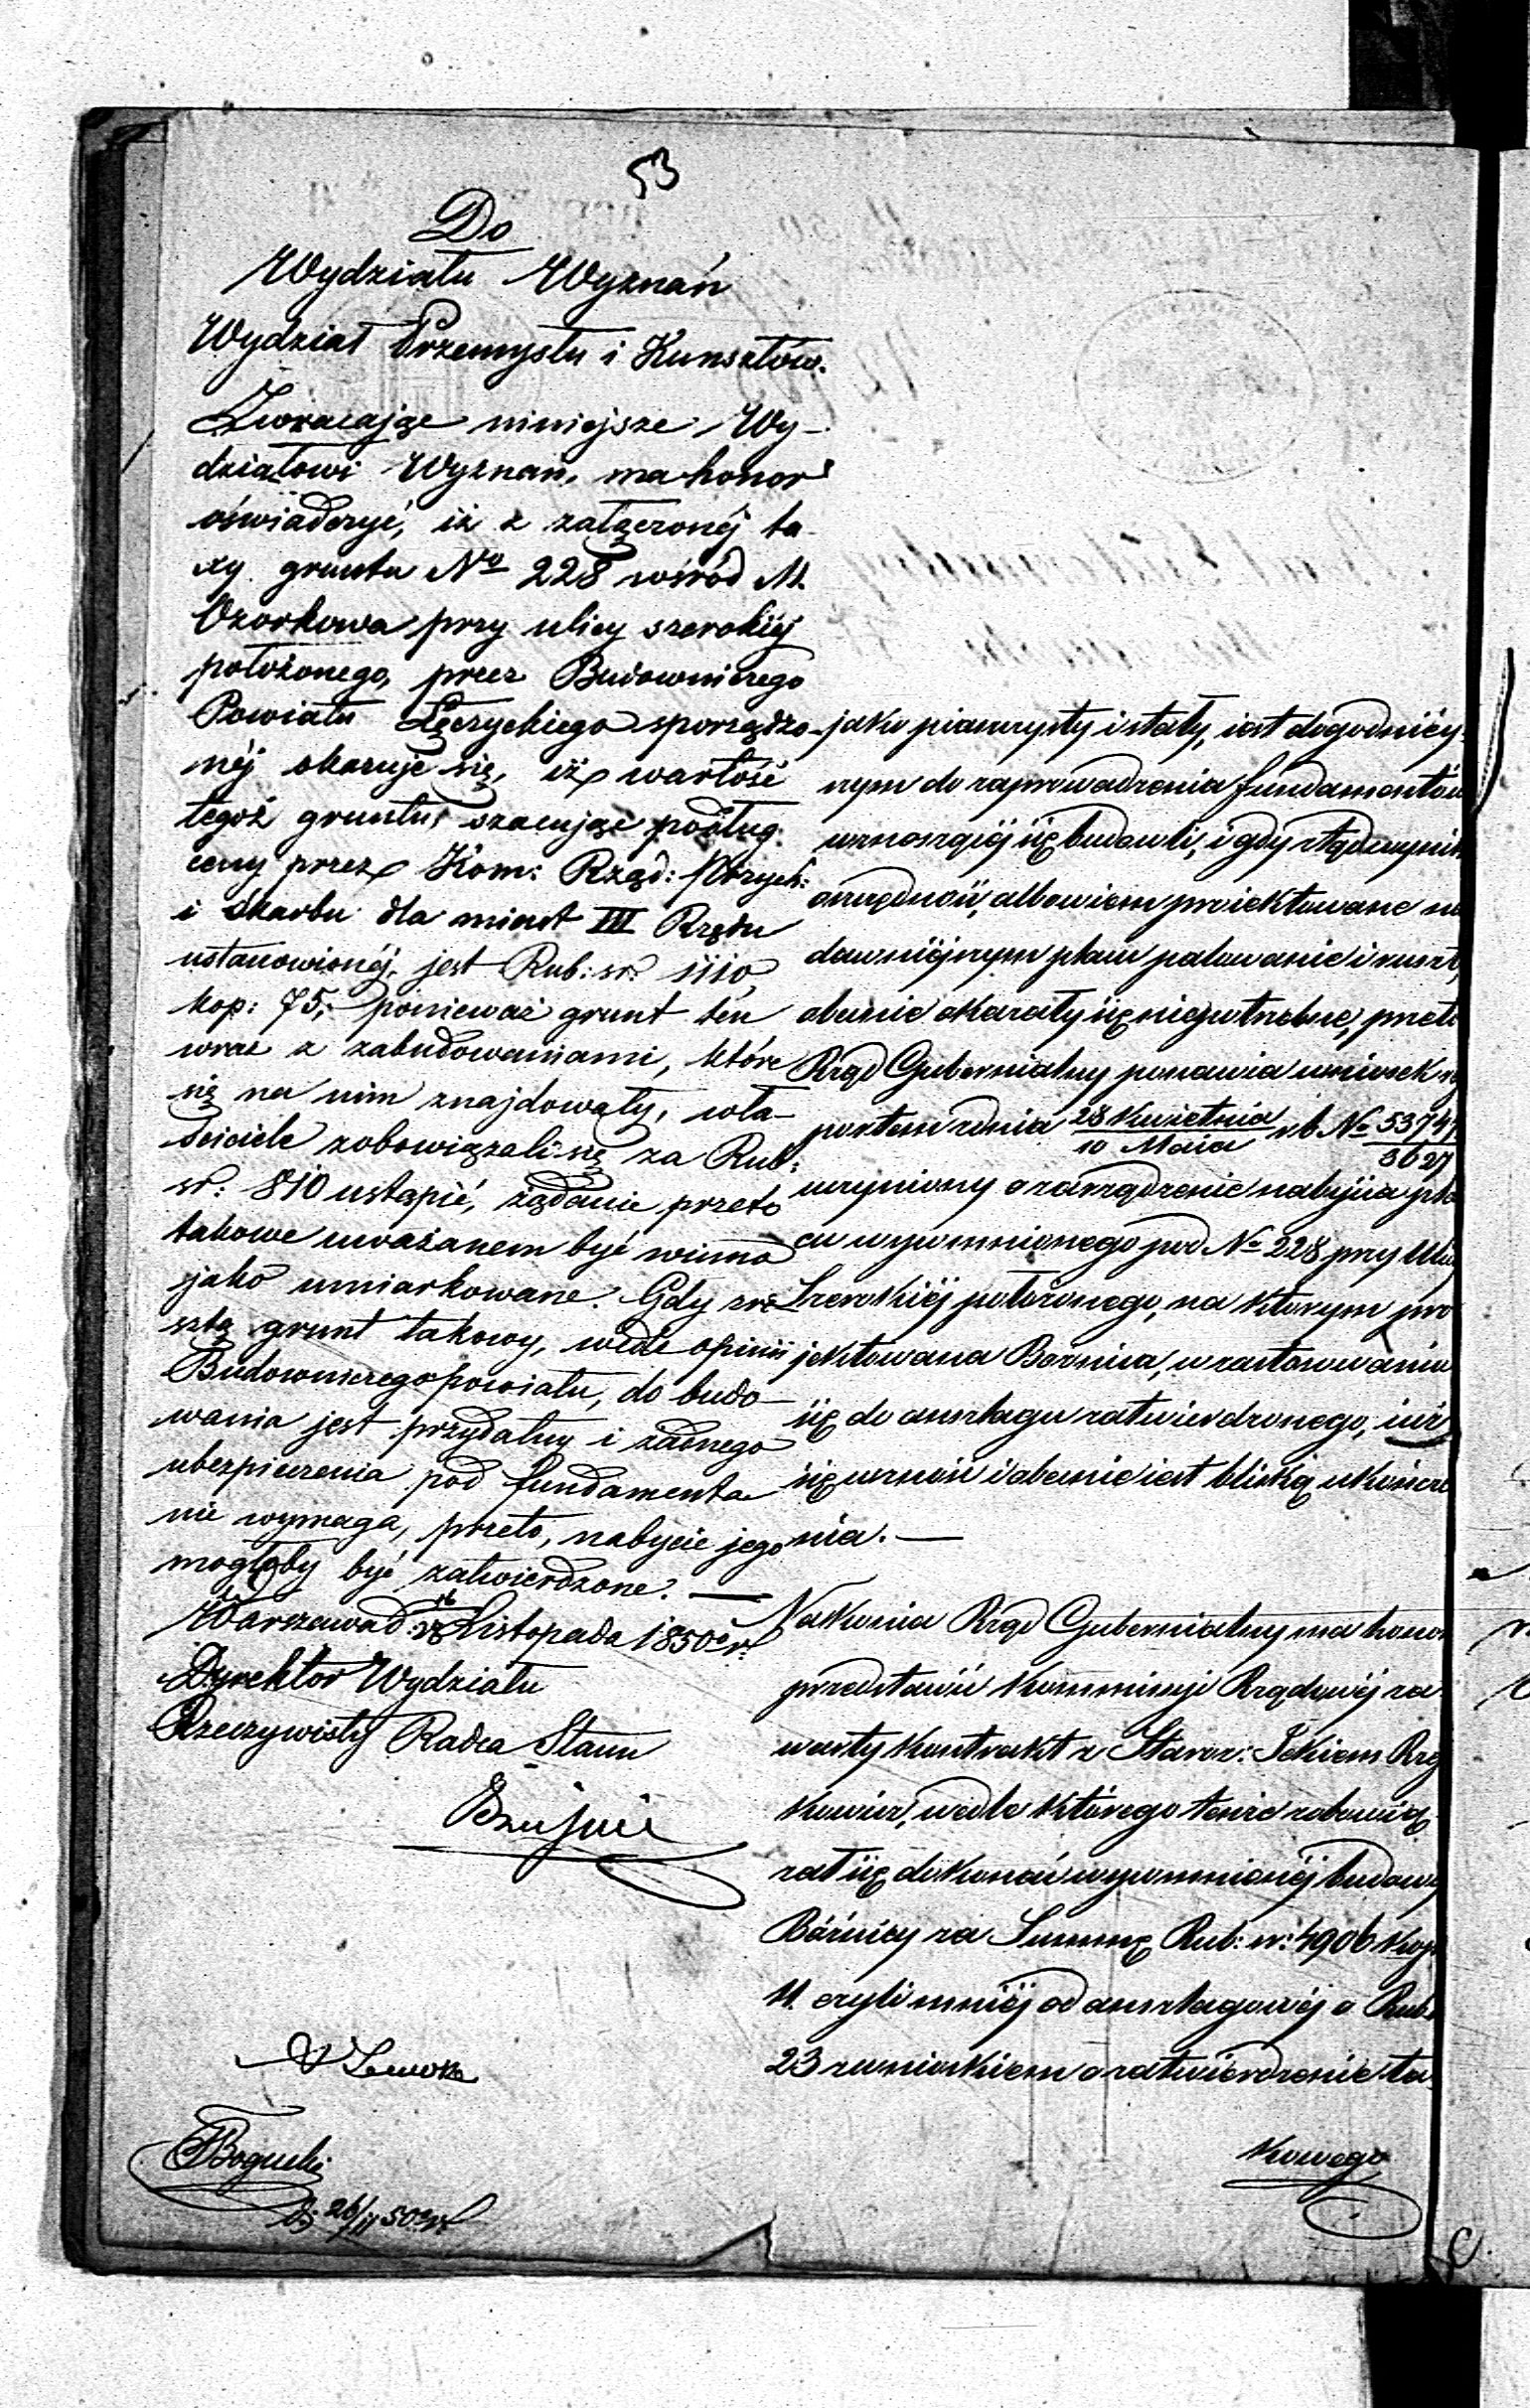 53
Do
Wydziału Wyznań
Wydział Przemysłu i Kunsztów.
Zwracając niniejsze Wy-
działowi Wyznań, ma honor
oświadczyć, iż z załączonéj ta-
xy gruntu No 228 wśród M.
Ozorkowa przy ulicy szerokiéj
położonego, przez Budowniczego
Powiatu Łęczyckiego sporządzo-
néj okazuje się, iż wartość
tegoż gruntu, szacując podług
ceny przez Kom: Rząd: Przych:
i Skarbu dla miast III Rzędu
ustanowionéj, jest Rub: sr: 1110,
kop: 75, ponieważ grunt ten
wraz z zabudowaniami, które
się na nim znajdowały, wła-
ściciele zobowiązali się za Rub:
sr: 810 ustąpić, żądanie przeto
takowe uważanem być winno
jako umiarkowane. Gdy zre-
sztą grunt takowy, wedle opinii
Budowniczego powiatu, do budo-
wania jest przydatny i żadnego
ubezpieczenia pod fundamenta
nie wymaga, przeto, nabycie jego
mogłoby być zatwierdzone. —
Warszawa d: Listopada 1850 r.
Dyrektor Wydziału
Rzeczywisty Radca Stanu
Bogucki
d: 26/11 50 r.
jako piasczysty i stały, iest dogodniey-
szym do zaprowadzenia fundamentów
wznoszącéj się budowli, i gdy ztąd wynik
oszczędność, albowiem proiektowane na
dawniéjszym placu palowanie i ruszt,
obecnie okazały się niepotrzebne, przeto
Rząd Gubernialny ponawia wniosek ra
portem z dnia 28 Kwietnia / 10 Maia r b No 53747 / 3627
uczyniony o zarządzenie nabycia pla
cu wspomnionego pod No 228 przy Ulicy
Szerokiéj położonego, na którym pro
jektowana Bożnica, w zastosowaniu
się do anszlagu zatwierdzonego, iuż
się wznosi i obecnie iest bliską ukończe
nia. —
Nakoniec Rząd Gubernialny ma honor
przedstawić Kommissyi Rządowéj za-
warty Kontrakt z Staroz: Ickiem
wedle którego tenże zobowią-
zał się dokonać wspomnionéj budowy
Bóżnicy za Summę Rub: sr: 4906 kop
11. czyli mniéj od anszlagowéj o Rub:
23 z wnioskiem o zatwierdzenie ta-
kowego